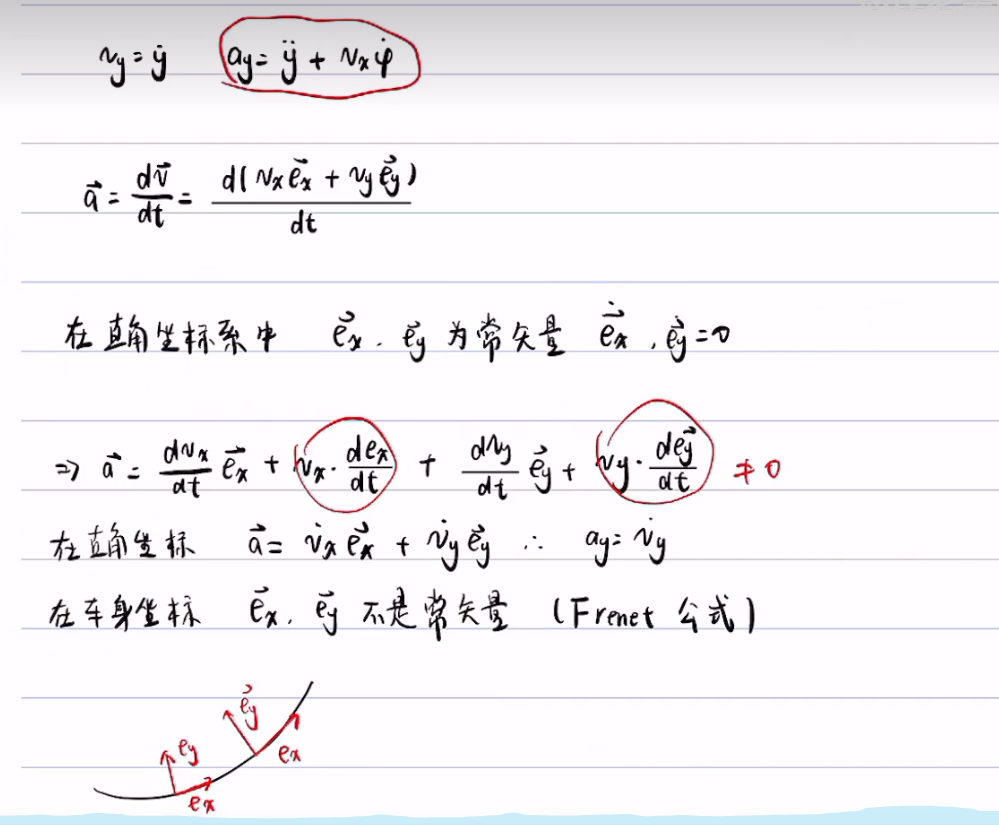 v_y = ẏ   a_y = ÿ + v_x φ̇
a⃗ = dv⃗/dt = d(v_x e⃗_x + v_y e⃗_y)/dt
在直角坐标系中 e⃗_x . e⃗_y 为常矢量 ė⃗_x , ė⃗_y = 0
⇒ a⃗ = dv_x/dt e⃗_x + v_x · de_x/dt + dv_y/dt e⃗_y + v_y · de⃗_y/dt ≠ 0
在直角坐标 a⃗ = v̇_x e⃗_x + v̇_y e⃗_y ∴ a_y = v̇_y
在车身坐标 e⃗_x . e⃗_y 不是常矢量 (Frenet 公式)
e⃗_y
e_y e_x
e_x